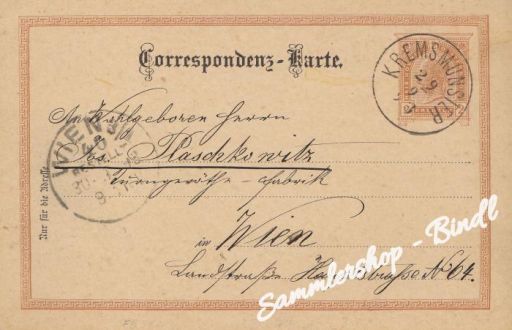 Correspondenz-Karte.
KREMSMÜNSTER
29
9
An Wohlgeboren Herrn
Jos. Plaschkowitz
Turngeräthe-Fabrik
in Wien
Landstraße Hauptstraße No 64.
Nur für die Adresse
WIEN
Sammlershop - Bindl